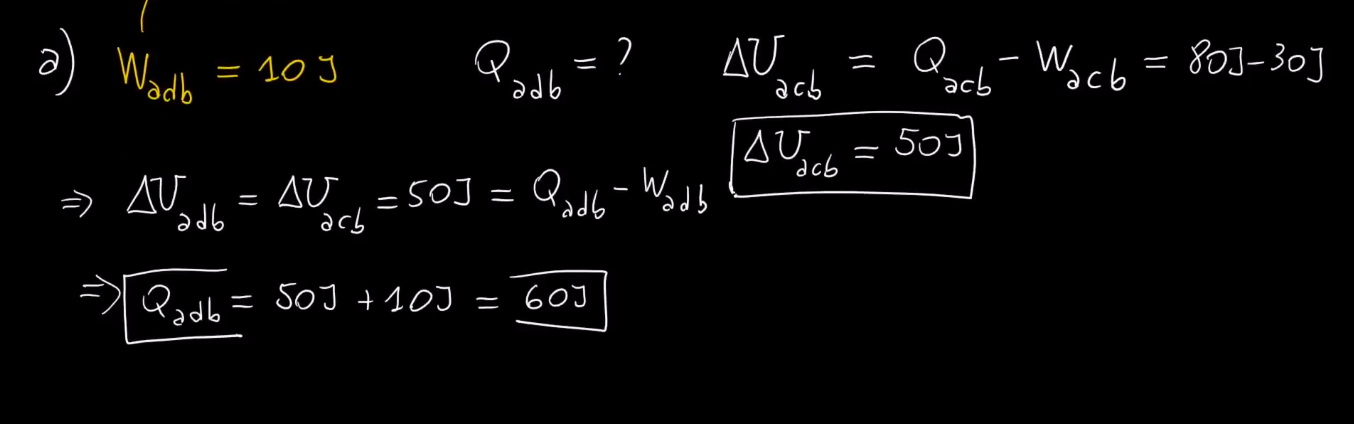 a) W_adb = 10 J Q_adb = ? ΔU_acb = Q_acb - W_acb = 80J-30J
ΔU_acb = 50J
⇒ ΔU_adb = ΔU_acb = 50J = Q_adb - W_adb
⇒ Q_adb = 50J + 10J = 60J